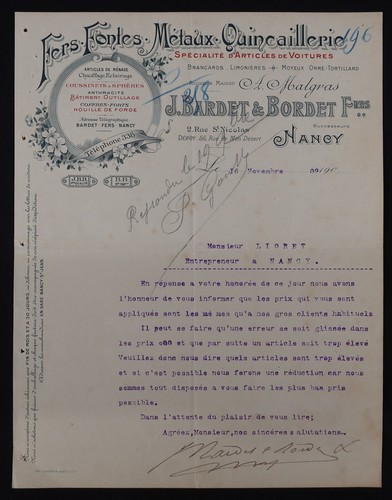 Fers·Fontes·Métaux·Quincaillerie
SPÉCIALITÉ D'ARTICLES DE VOITURES
BRANCARDS LIMONIÈRES MOYEUX ORME-TORTILLARD
ARTICLES DE MÉNAGE
Chauffage, Eclairage
COUSSINETS à SPHÈRES
ANTHRACITE
BÂTIMENT OUTILLAGE
COFFRES-FORTS
HOUILLE DE FORGE
Adresse Télégraphique
BARDET-FERS-NANCY
Téléphone 336
MAISON A. Malgras
J. BARDET & BORDET FRES
SUCCESSEURS
2, Rue St Nicolas
NANCY
318
Répondu le
Le 16 Novembre
Monsieur LIORET
Entrepreneur a NANCY.
En réponse a votre honorée de ce jour nous avons
l'honneur de vous informer que les prix qui vous sont
appliqués sont les mé mes qu'a nos gros clients habituels
Il peut se faire qu'une erreur se soit glissée dans
les prix et que par suite un article soit trop élevé
Veuillez donc nous dire quels articles sont trop élevés
et si c'est possible nous ferons une réduction car nous
sommes tout disposés a vous faire les plus bas prix
possible.
Dans l'attente du plaisir de vous lire;
Agréez,Monsieur,nos sincères salutations.